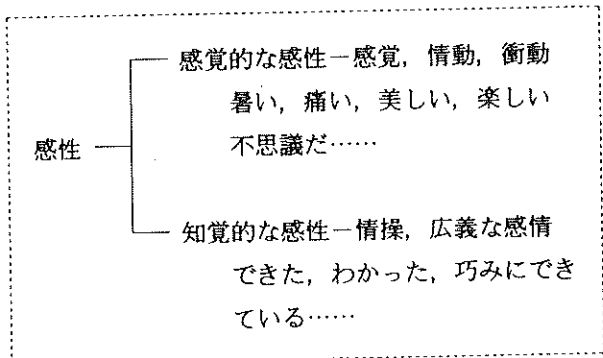 感覚的な感性－感覚，情動，衝動
暑い，痛い，美しい，楽しい
不思議だ……
感性
知覚的な感性－情操，広義な感情
できた，わかった，巧みにでき
ている……